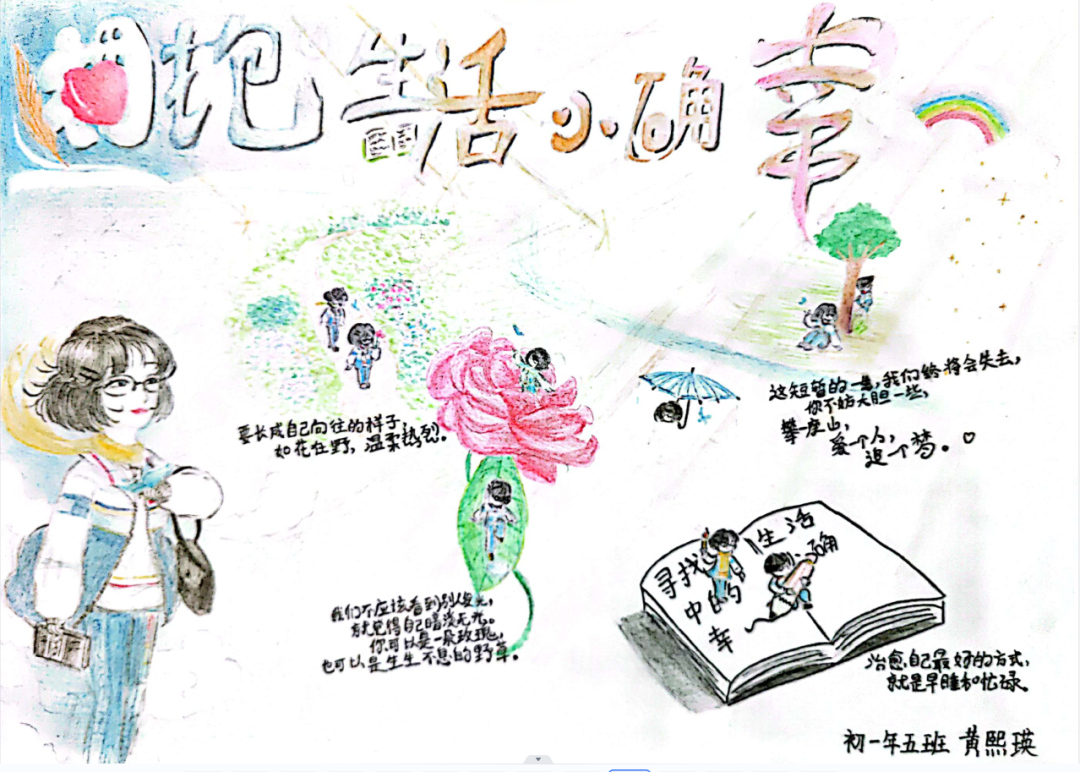 拥抱生活小确幸
要长成自己向往的样子,
如花在野,温柔热烈。
这短暂的一生,我们终将会失去,
你不妨大胆一些,
攀一座山,
爱一个人,
追个梦。
我们不应该看到别人发光,
就觉得自己暗淡无光。
你可以是一朵玫瑰,
也可以是生生不息的野草。
寻找生活
中的小确
幸
治愈自己最好的方式,
就是早睡和忙碌。
初一年五班 黄熙瑛